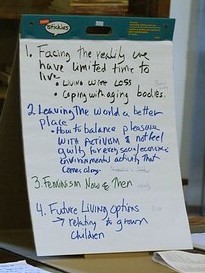 stickies
1. Facing the reality we
have limited time to
live
• Living with loss
• Coping with aging bodies.
2. Leaving the world a better
place
• How to balance pleasure
with activism & not feel
guilty for every social, economic
environmental activity that
comes along.
3. Feminism Now & Then
4. Future Living Options
→ relating to grown
children